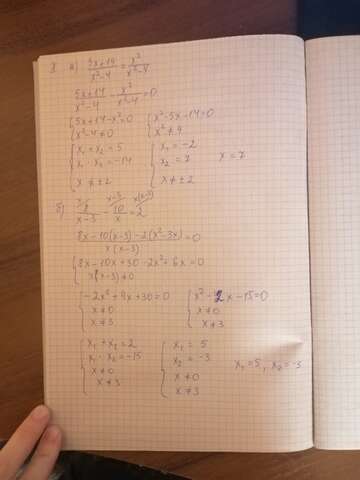 3 а) 5x+14/x²-4 = x²/x²-4
5x+14/x²-4 - x²/x²-4 = 0
{5x+14-x²=0 {x²-5x-14=0
x²-4≠0 x²≠4
{x₁+x₂=5 {x₁=-2
x₁·x₂=-14 x₂=7 x=7
x≠±2 x≠±2
б) 8/x-3 - 10/x = 2
8x-10(x-3)-2(x²-3x)/x(x-3) = 0
{8x-10x+30-2x²+6x=0
x(x-3)≠0
{-2x²+4x+30=0 {x²-2x-15=0
x≠0 x≠0
x≠3 x≠3
{x₁+x₂=2 {x₁=5
x₁·x₂=-15 x₂=-3 x₁=5, x₂=-3
x≠0 x≠0
x≠3 x≠3